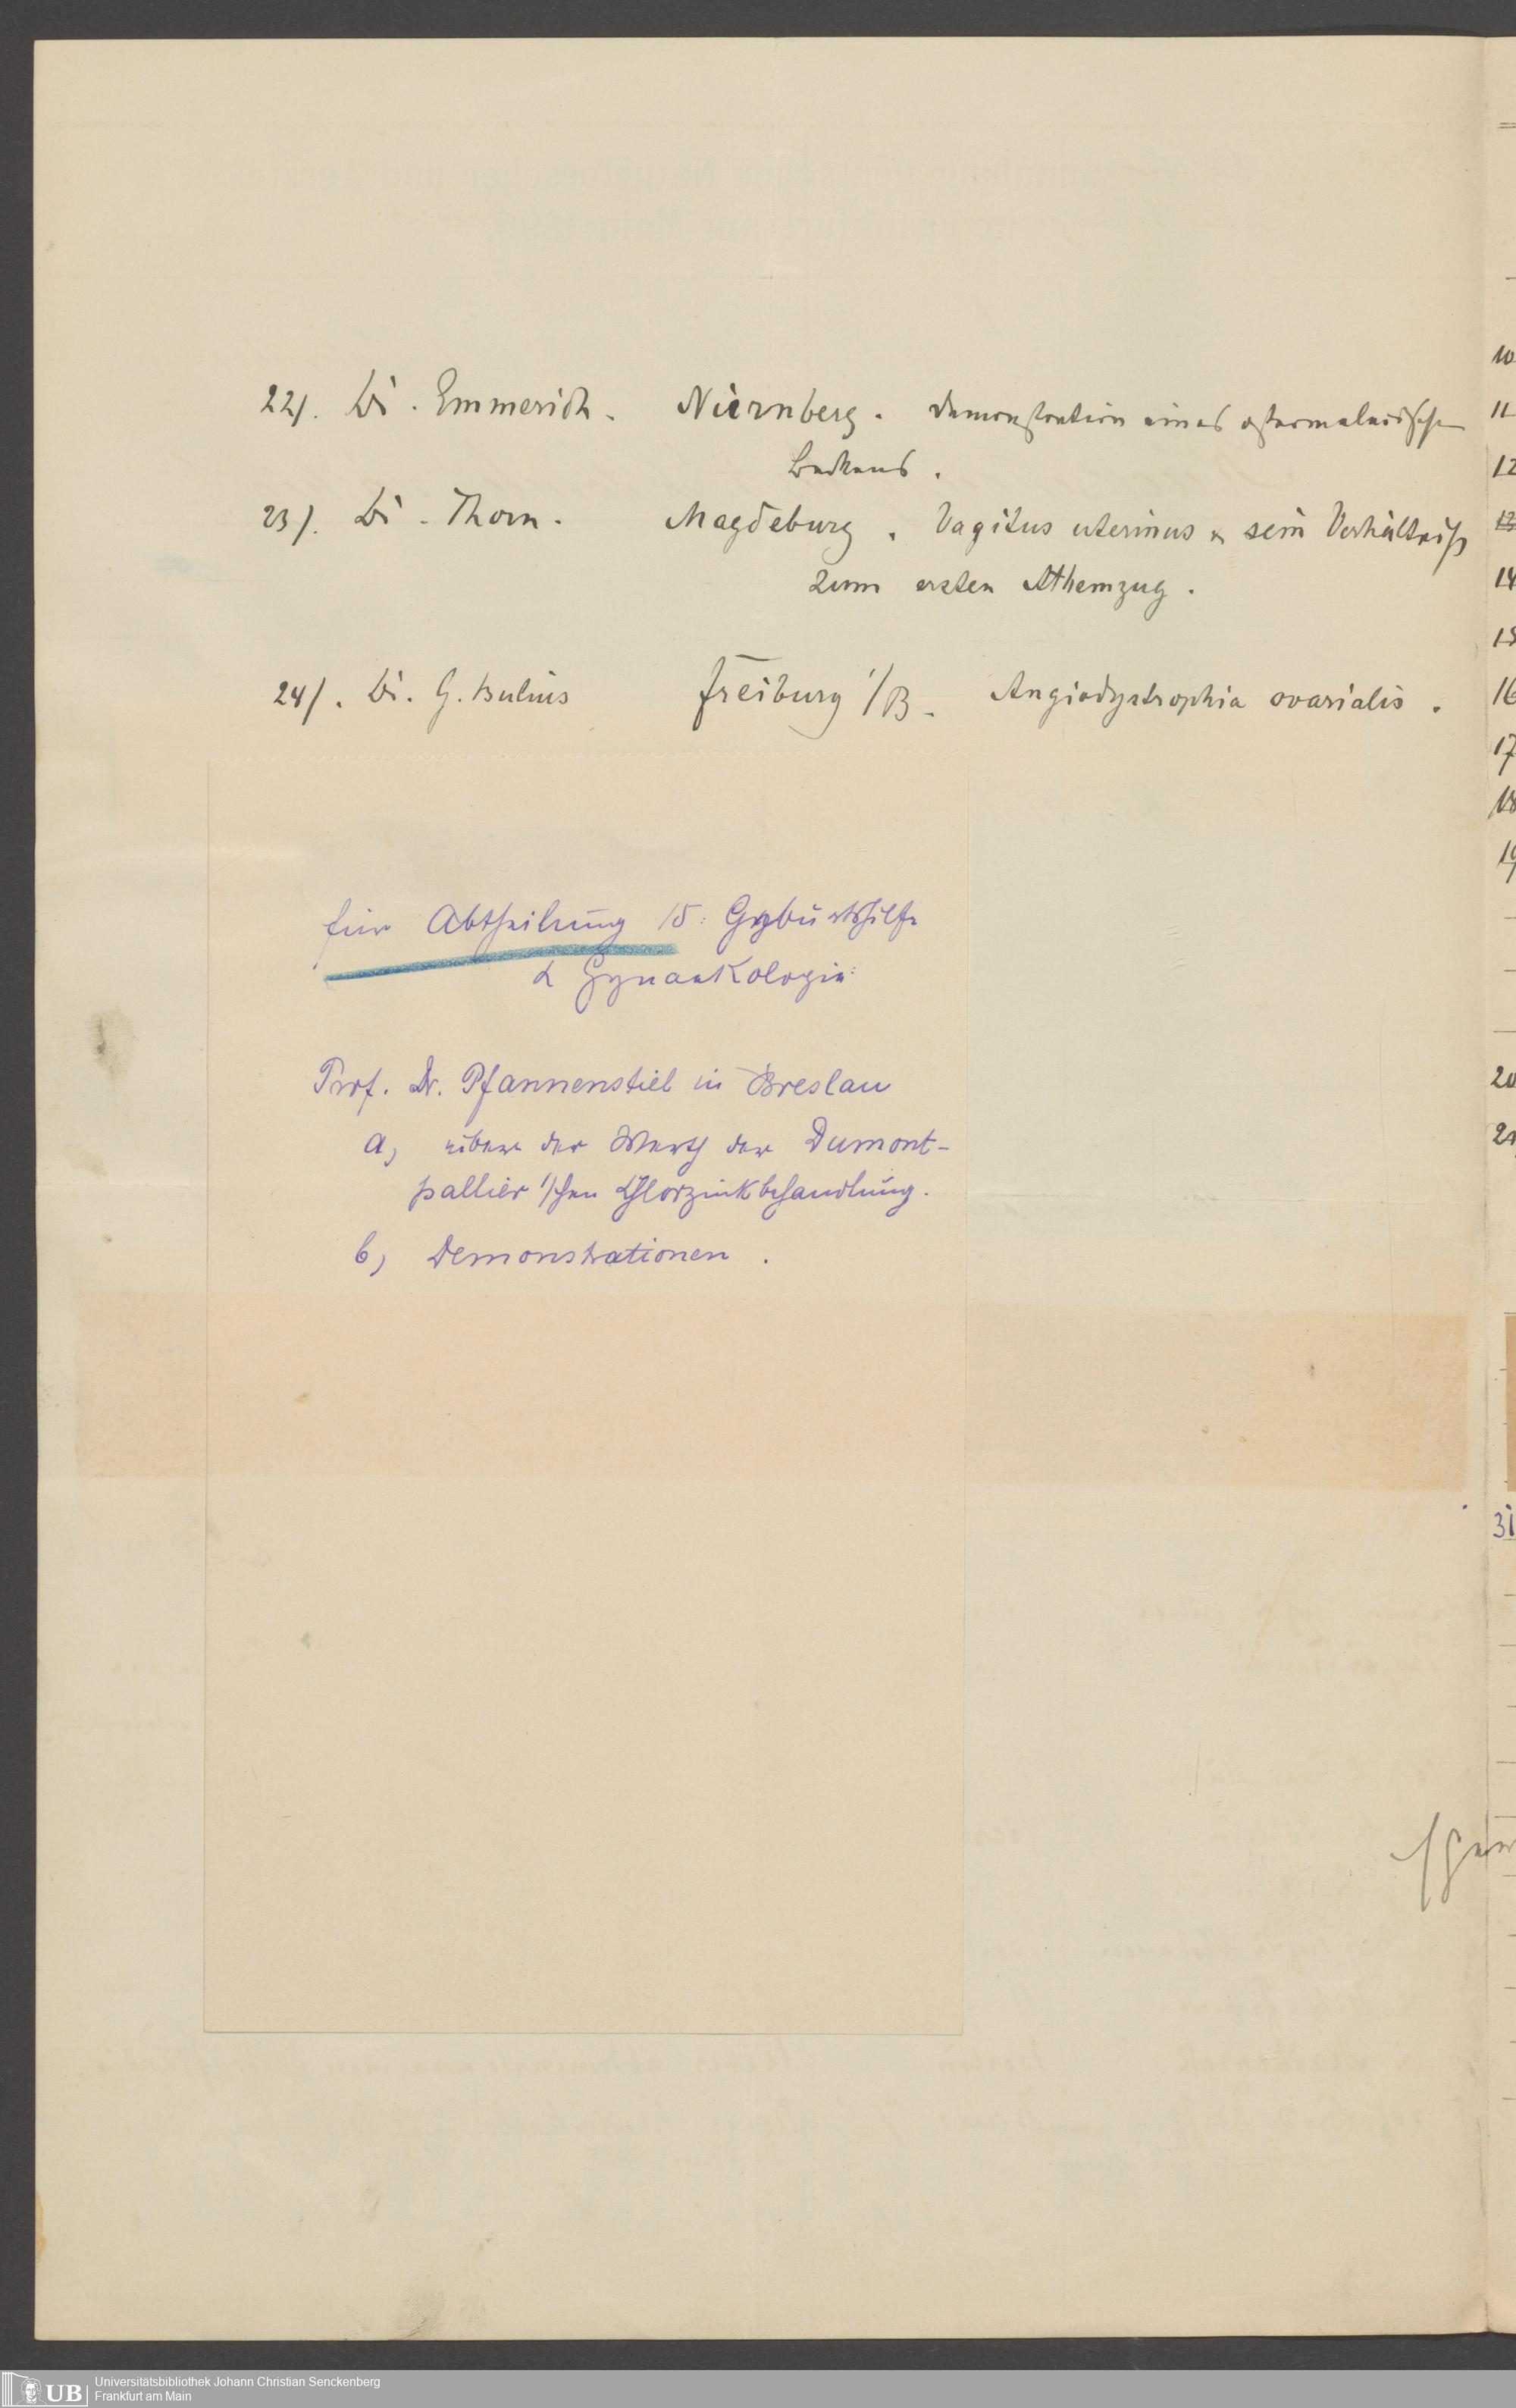 22/. Dr. Emmerich. Nürnberg. Demonstration eines osteomalacischen
Beckens.
23/. Dr. Thorn. Magdeburg. Vagitus uterinus & sein Verhältniß
zum ersten Athemzug.
24/. Dr. G. Bulius Freiburg i/B. Angiodystrophia ovarialis.
für Abtheilung 15: Geburtshilfe
& Gynaekologie:
Prof. Dr. Pfannenstiel in Breslau
a, über der Werth der Dumont-
pallier'schen Chlorzinkbehandlung.
b, Demonstrationen.
10
11
12
13
14
15
16
17
18
19
20
21
31
UB Universitätsbibliothek Johann Christian Senckenberg
Frankfurt am Main